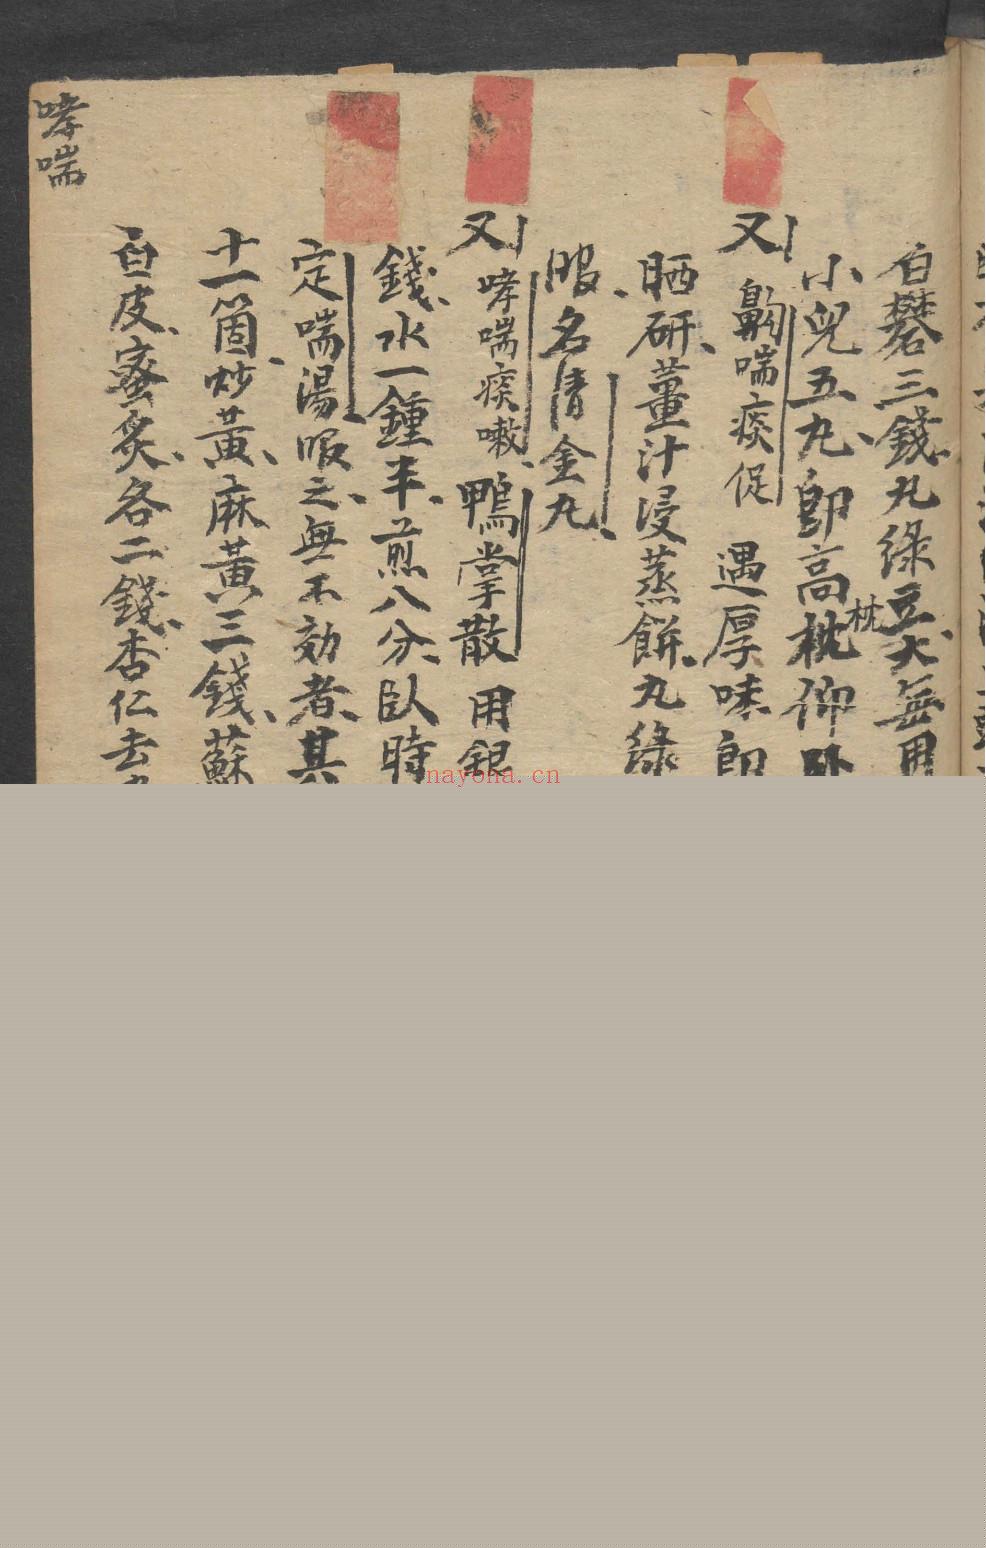 白礬三錢丸綠豆大每用
小兒五丸即高枕仰卧
枕
又 齁喘痰促 遇厚味即
晒研薑汁浸蒸餅丸綠
服名清金丸
又 哮喘痰嗽 鴨掌散 用銀
錢水一鍾半煎八分臥時
定喘湯服之無不効者其
十一箇炒黃麻黃三錢蘇
白皮蜜炙各二錢杏仁去
哮喘
nayona.cn